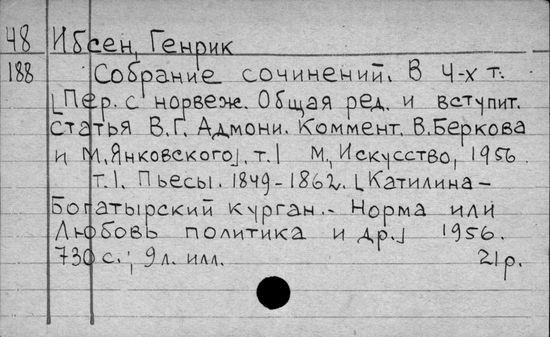 48 Ибсен, Генрик
188 Собрание сочинений. В 4-х т.
[Пер. с норвеж. Общая ред. и вступит.
статья В.Г. Адмони. Коммент. В.Беркова
и М.Янковского]. т.1 М., Искусство, 1956.
т.1. Пьесы. 1849-1862. [Катилина-
Богатырский курган.- Норма или
Любовь политика и др.] 1956.
730 с.; 9 л. илл. 21 р.